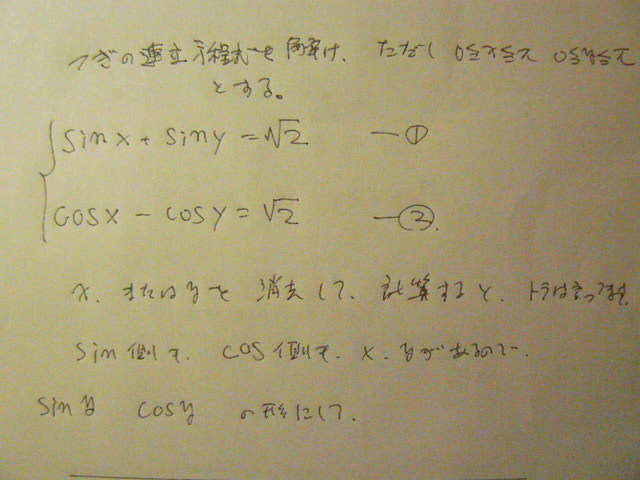 つぎの連立方程式を解け、ただし 0≦x≦π 0≦y≦π
とする。
sinx + siny = √2 ー①
cosx − cosy = √2 ー②.
x、またはyを消去して、計算すると、トラは言ってます。
sin側も、cos側も、x、yがあるので、
siny cosy の形にして、